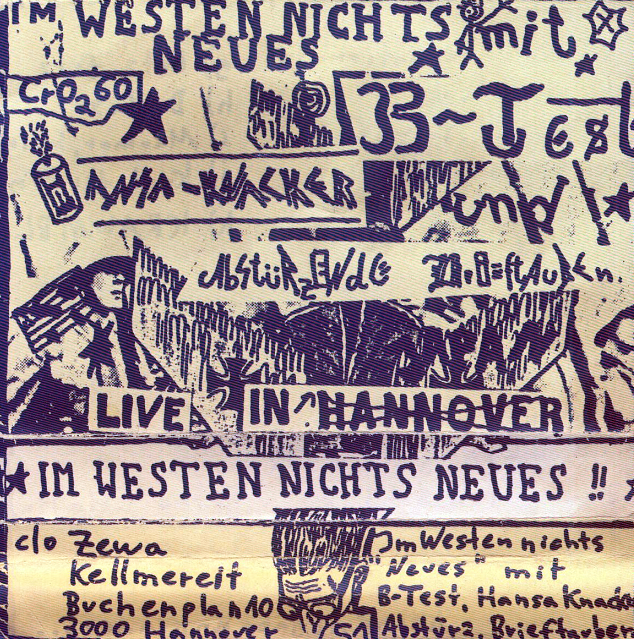 IM WESTEN NICHTS mit
NEUES
CrO2 60
33~Test
ANSA-KNACKER
und
AbstürZENdE BriefTAuBEn.
LIVE IN HANNOVER
IM WESTEN NICHTS NEUES !!
c/o Zewa
Kellmereit
Buchenplan 10
3000 Hannover 51
Im Westen nichts
"Neues" mit
B-Test, Hansa Knacker
Abstürz. Brieftauben